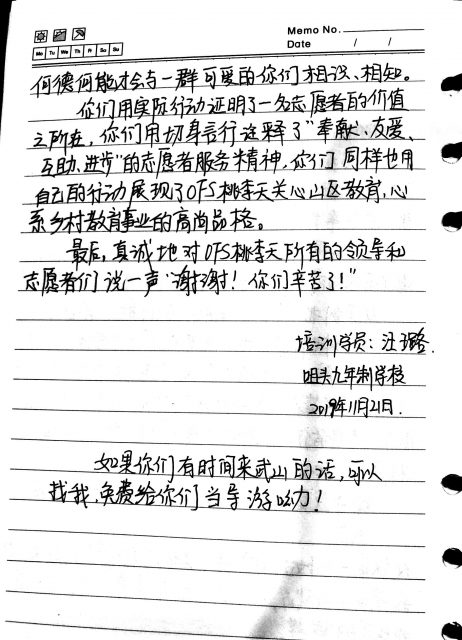 Memo No.
Date / /
Mo Tu We Th Fr Sa Su
何德何能才会与一群可爱的你们相识、相知。
你们用实际行动证明了一名志愿者的价值
之所在，你们用切身言行诠释了“奉献、友爱、
互助、进步”的志愿者服务精神，你们同样也用
自己的行动展现了OFS桃李天关心山区教育，心
系乡村教育事业的高尚品格。
最后，真诚地对OFS桃李天所有的领导和
志愿者们说一声“谢谢！你们辛苦了！”
培训学员：汪璐
咀头九年制学校
2019年11月21日.
如果你们有时间来武山的话，可以
找我，免费给你们当导游呦！